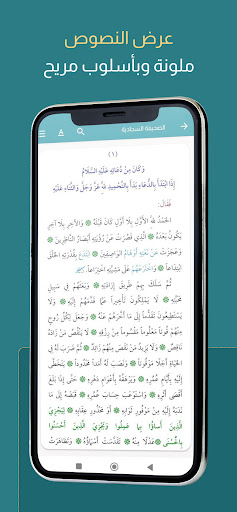 عرض النصوص
ملونة وبأسلوب مريح
الصحيفة السجادية
A
(١)
وَكَانَ مِنْ دُعَائِهِ عَلَيْهِ السَّلَامُ
إِذَا ابْتَدَأَ بِالدُّعَاءِ بَدَأَ بِالتَّحْمِيدِ لِلَّهِ عَزَّ وَجَلَّ وَالثَّنَاءِ عَلَيْهِ
فَقَالَ:
الْحَمْدُ لِلَّهِ الْأَوَّلِ بِلَا أَوَّلٍ كَانَ قَبْلَهُ ❋ وَالْآخِرِ بِلَا آخِرٍ
يَكُونُ بَعْدَهُ ❋ الَّذِي قَصُرَتْ عَنْ رُؤْيَتِهِ أَبْصَارُ النَّاظِرِينَ ❋
وَعَجَزَتْ عَنْ نَعْتِهِ أَوْهَامُ الْوَاصِفِينَ ❋ ابْتَدَعَ بِقُدْرَتِهِ الْخَلْقَ
ابْتِدَاعاً ❋ وَاخْتَرَعَهُمْ عَلَى مَشِيَّتِهِ اخْتِرَاعاً ❋
ثُمَّ سَلَكَ بِهِمْ طَرِيقَ إِرَادَتِهِ ❋ وَبَعَثَهُمْ فِي سَبِيلِ
مَحَبَّتِهِ ❋ لَا يَمْلِكُونَ تَأْخِيراً عَمَّا قَدَّمَهُمْ إِلَيْهِ ❋ وَلَا
يَسْتَطِيعُونَ تَقَدُّماً إِلَى مَا أَخَّرَهُمْ عَنْهُ ❋ وَجَعَلَ لِكُلِّ رُوحٍ
مِنْهُمْ قُوتاً مَعْلُوماً مَقْسُوماً مِنْ رِزْقِهِ ❋ لَا يَنْقُصُ مَنْ زَادَهُ
نَاقِصٌ ❋ وَلَا يَزِيدُ مَنْ نَقَصَ مِنْهُمْ زَائِدٌ ❋ ثُمَّ ضَرَبَ لَهُ فِي
الْحَيَاةِ أَجَلاً مَوْقُوتاً ❋ وَنَصَبَ لَهُ أَمَداً مَحْدُوداً ❋ يَتَخَطَّى
إِلَيْهِ بِأَيَّامِ عُمُرِهِ ❋ وَيَرْهَقُهُ بِأَعْوَامِ دَهْرِهِ ❋ حَتَّى إِذَا بَلَغَ
أَقْصَى أَثَرِهِ ❋ وَاسْتَوْعَبَ حِسَابَ عُمُرِهِ ❋ قَبَضَهُ إِلَى مَا نَدَبَهُ
إِلَيْهِ مِنْ مَوْفُورِ ثَوَابِهِ ❋ أَوْ مَحْذُورِ عِقَابِهِ ❋ لِيَجْزِيَ
الَّذِينَ أَسَاؤُا بِمَا عَمِلُوا وَيَجْزِيَ الَّذِينَ أَحْسَنُوا
بِالْحُسْنَى ❋ عَدْلاً مِنْهُ ❋ تَقَدَّسَتْ أَسْمَاؤُهُ ❋ وَتَظَاهَرَتْ